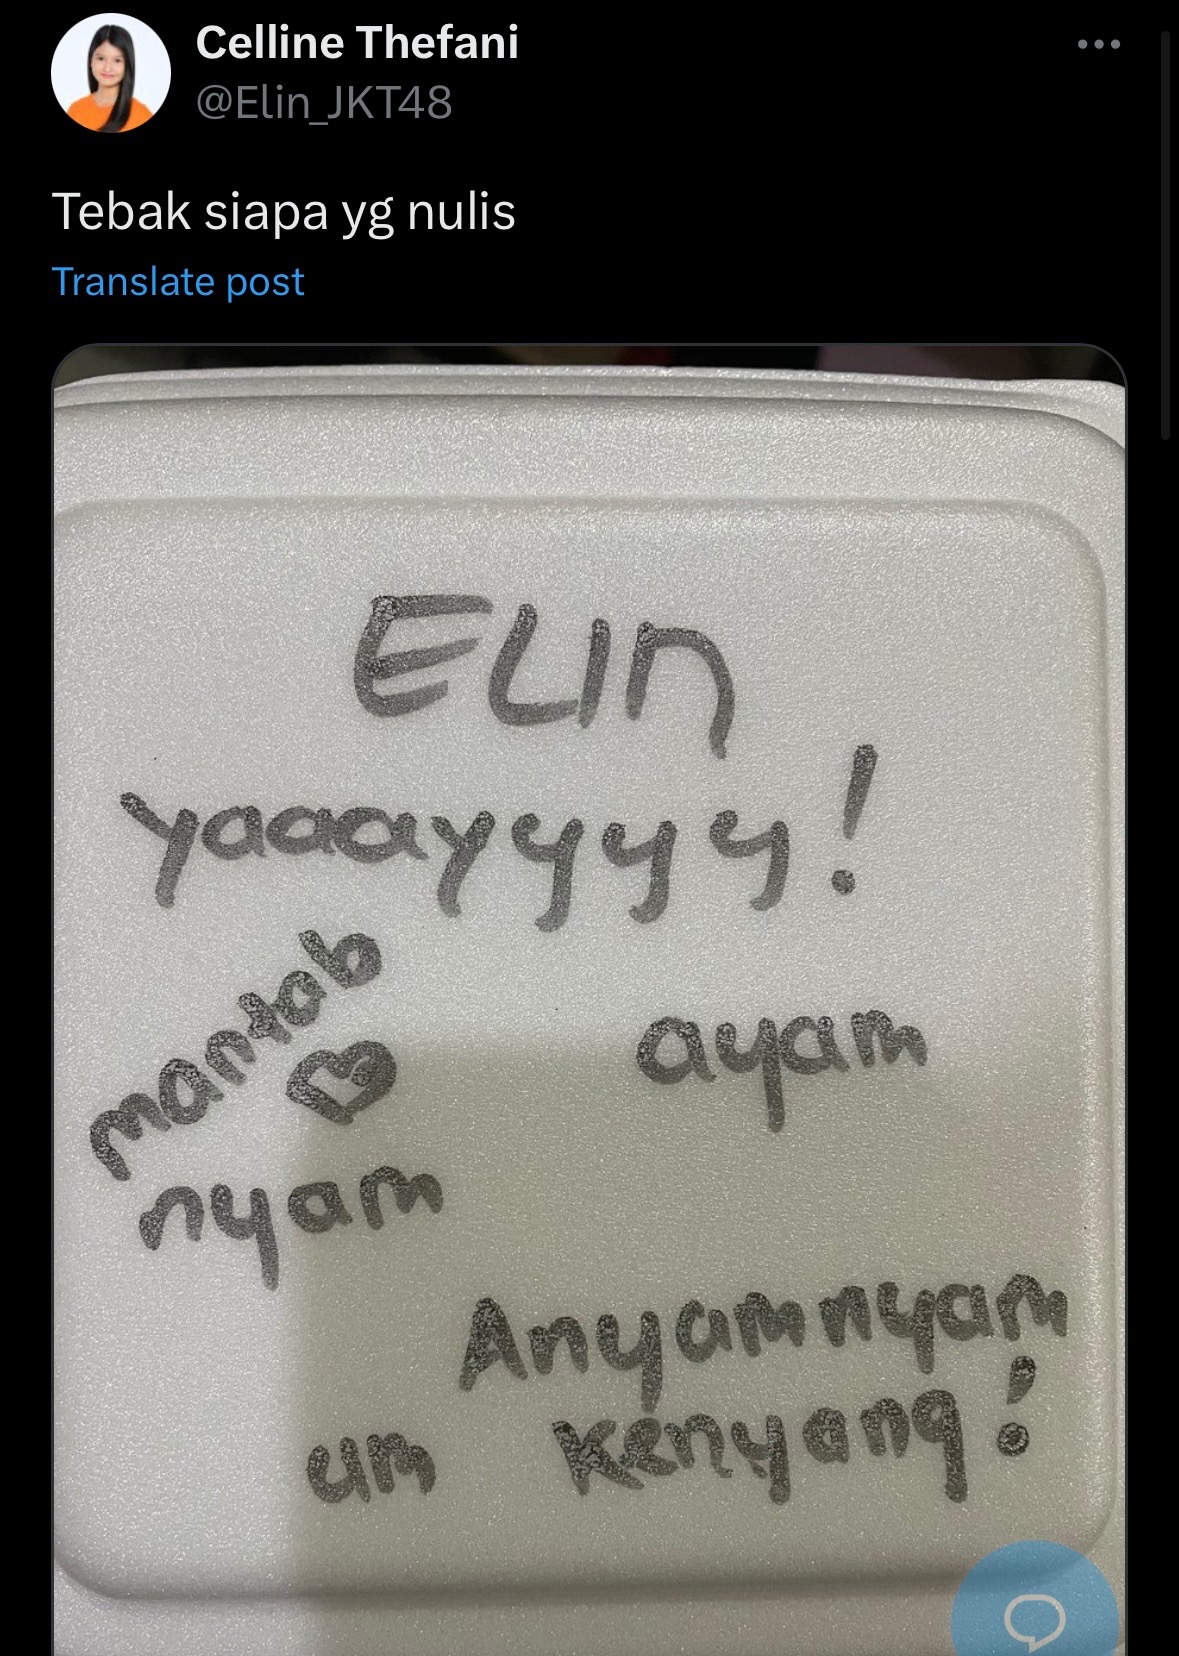 Celline Thefani
@Elin_JKT48
Tebak siapa yg nulis
Translate post
ELIn
yaaayyyy!
mantab
ayam
nyam
Anyamnyam
um kenyang!